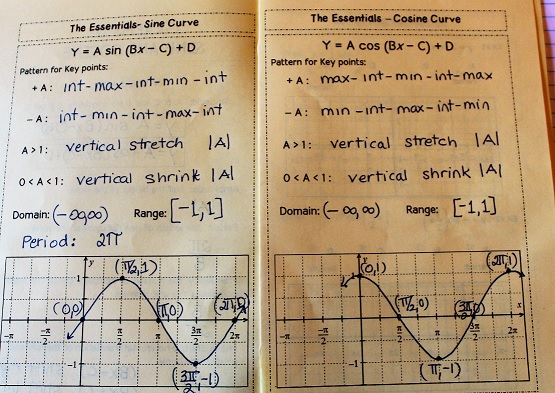 The Essentials- Sine Curve
Y = A sin (Bx – C) + D
Pattern for Key points:
+A: int-max-int-min-int
-A: int-min-int-max-int
A>1: vertical stretch |A|
0<A<1: vertical shrink |A|
Domain: (-∞,∞) Range: [-1,1]
Period: 2π
y
1
(π/2, 1)
(0,0)
(π,0)
(2π,0)
-π
-π/2
π/2
π
3π/2
2π
-1
(3π/2, -1)
The Essentials – Cosine Curve
Y = A cos (Bx – C) + D
Pattern for Key points:
+A: max-int-min-int-max
-A: min-int-max-int-min
A>1: vertical stretch |A|
0<A<1: vertical shrink |A|
Domain: (-∞,∞) Range: [-1,1]
(0,1)
(2π,1)
1
(π/2,0)
(3π/2,0)
x
-π
-π/2
π/2
π
3π/2
2π
-1
(π,-1)